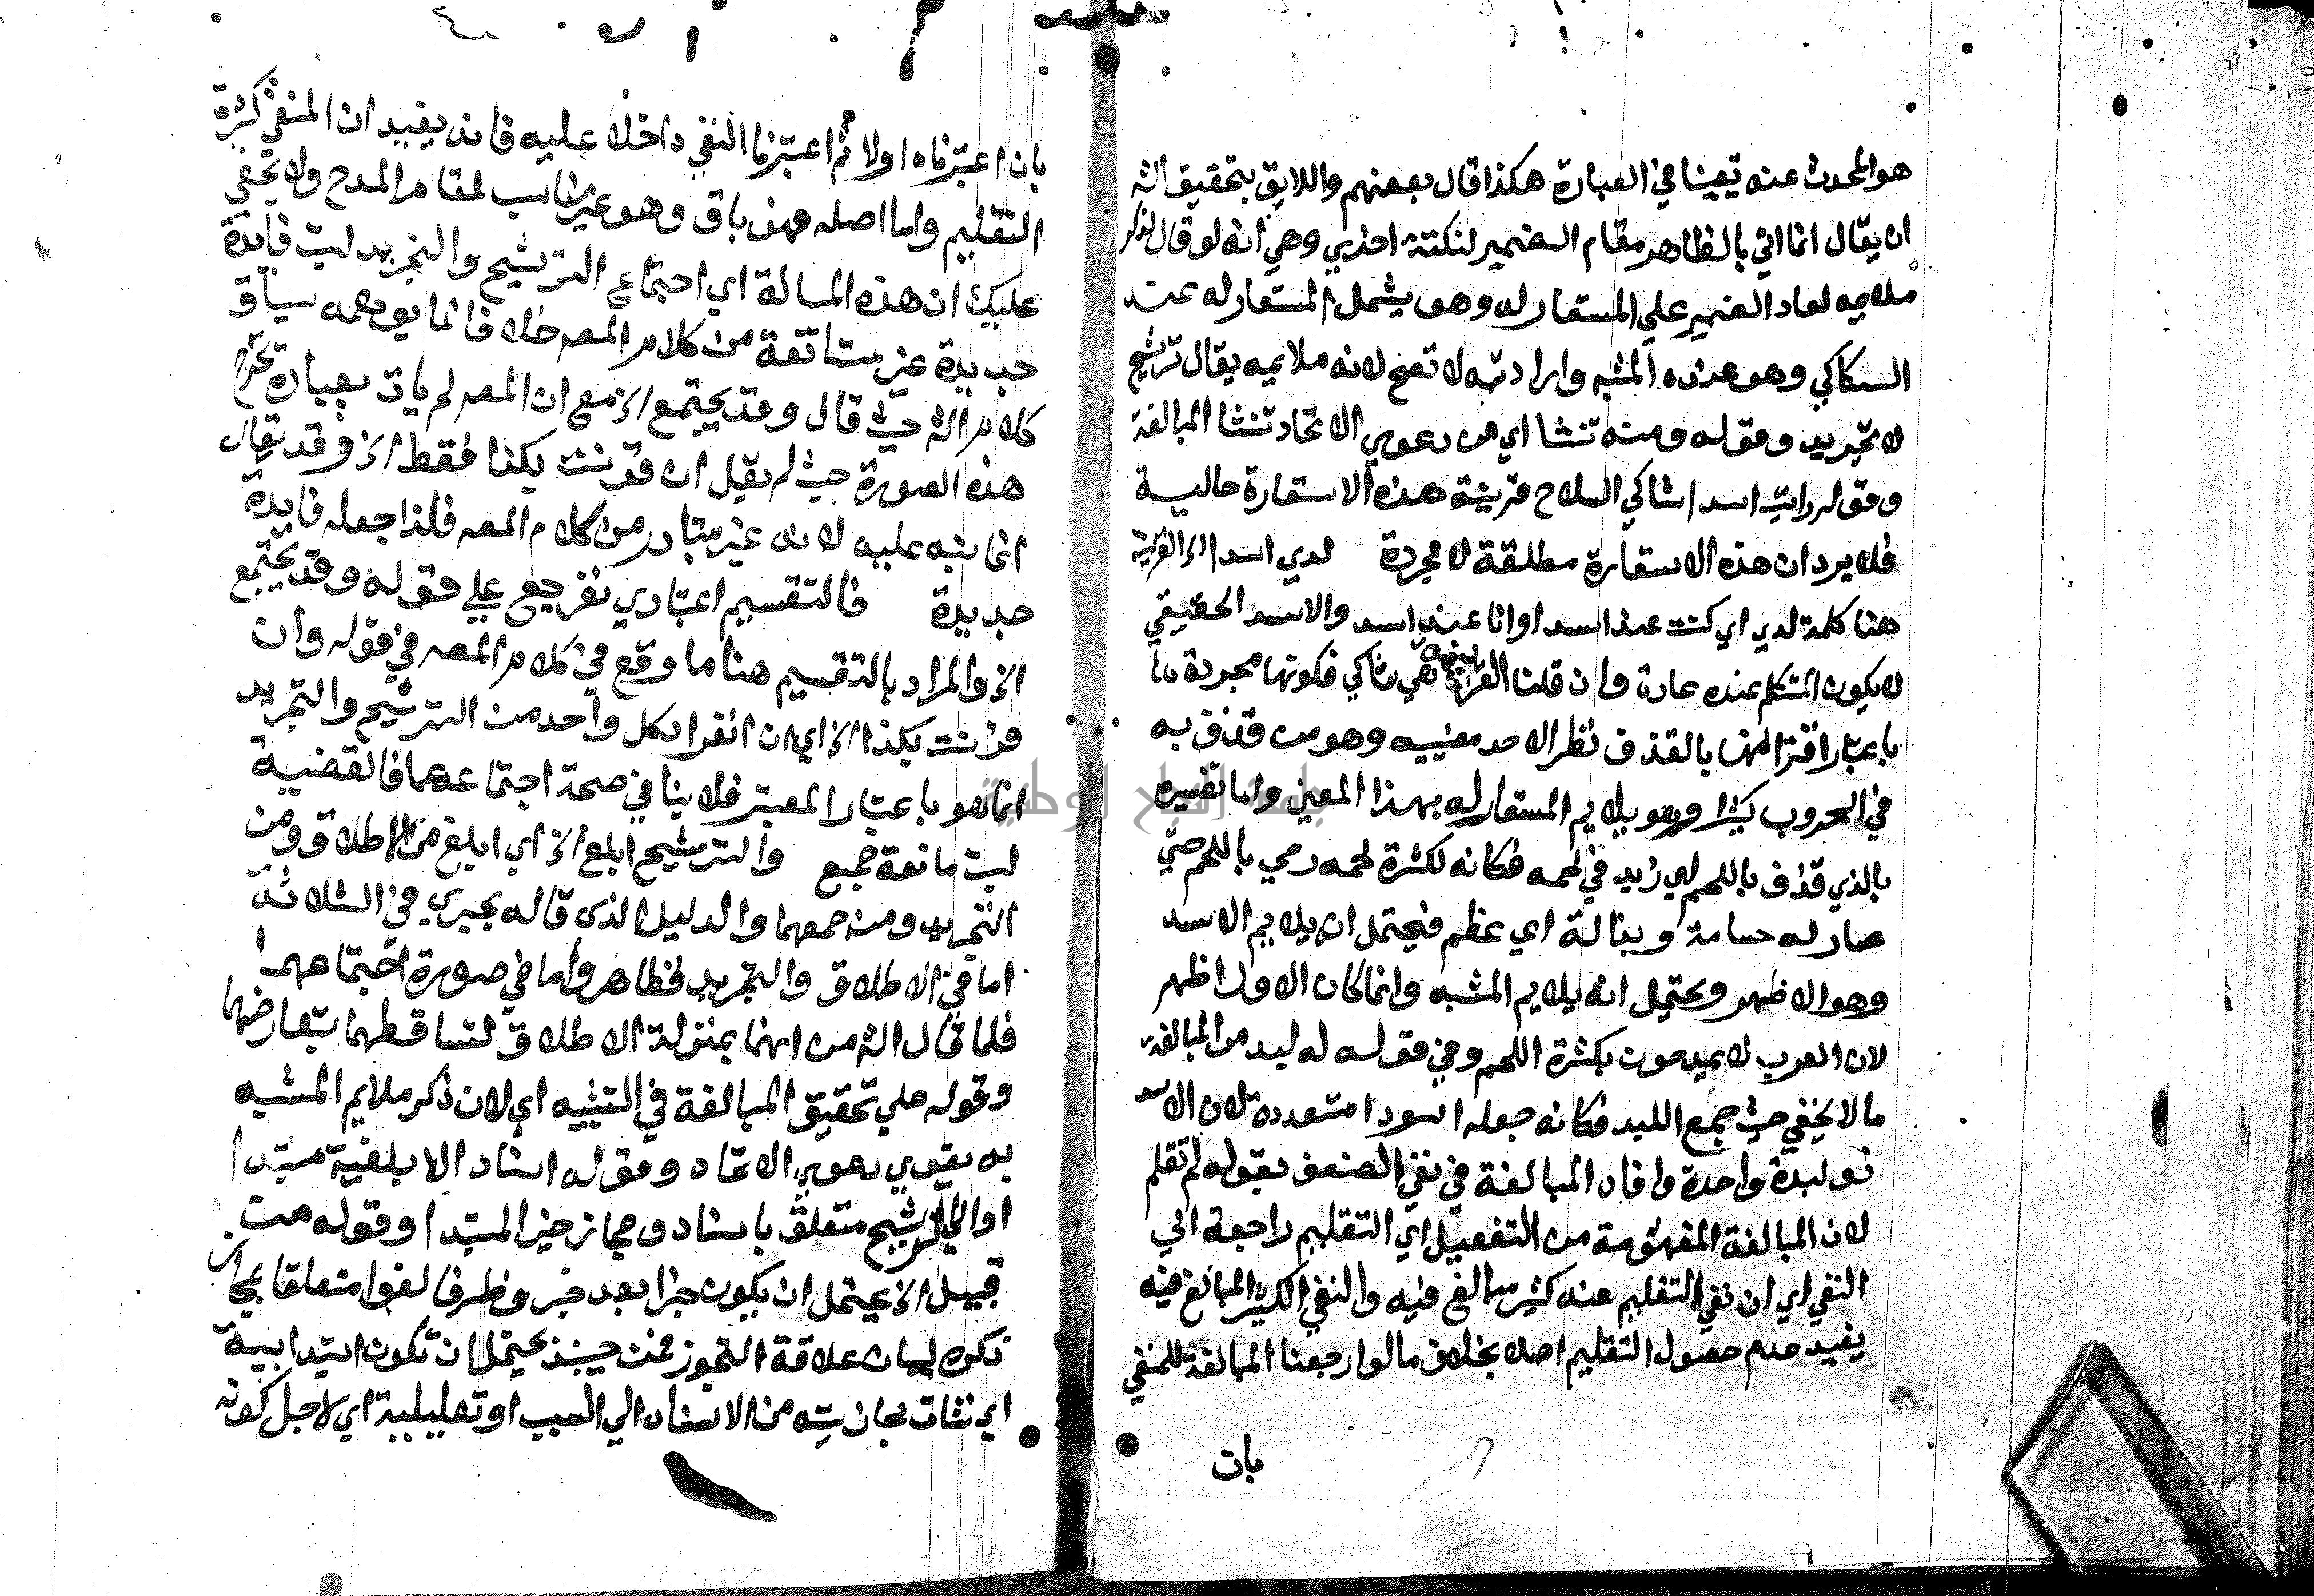 هو المحدث عنه يقينا في العبارة هكذا قال بعضهم واللايق بتحقيق الش
ان يقال انما اتي بالظاهر مقام الضمير لنكتة اخري وهي انه لو قال لذكر
ملايمه لعاد الضمير علي المستعار له وهو يشمل المستعار له عند
السكاكي وهو عنده المشبه وارادته لا تصح لانه ملايمه يقال ترشيح
لا تجريد وقوله ومنه تنشا اي من دعوي الاتحاد تنشا المبالغة
وقوله رايت اسدا شاكي السلاح قرينة هذه الاستعارة حالية
فلا يرد ان هذه الاستعارة مطلقة لا مجردة لدي اسد الخ القرينة
هنا كلمة لدي اي كنت عند اسد او انا عند اسد والاسد الحقيقي
لا يكون المتكلم عنده عادة وان قلنا القرينة هي شاكي فكونها مجردة
باعتبار اقترانها بالقذف نظرا لاحد معنييه وهو من قذف به
في الحروب كثيرا وهو يلايم المستعار له بهذا المعني واما تفسيره
بالذي قذف باللحم اي زيد في لحمه فكانه لكثرة لحمه رمي باللحم حتي
صار له جسامة ونبالة اي عظم فيحتمل ان يلايم الاسد
وهو الاظهر ويحتمل انه يلايم المشبه وانما كان الاول اظهر
لان العرب لا يمدحون بكثرة اللحم وفي قوله له لبد من المبالغة
ما لا يخفي حيث جمع اللبد فكانه جعله اسودا متعددة لان الاسد
ذو لبدة واحدة وافاد المبالغة في نفي الضعف بقوله لم تقلم
لان المبالغة المفهومة من التفعيل اي التقليم راجعة الي
النفي اي ان نفي التقليم عنه كثير مبالغ فيه والنفي الكثير المبالغ فيه
يفيد عدم حصول التقليم اصلا بخلاف ما لو ارجعنا المبالغة للمنفي
بان
بان اعتبرناه اولا ثم اعتبرنا النفي داخلا عليه فانه يفيد ان المنفي كثرة
التقليم واما اصله فهو باق وهو غير مناسب لمقام المدح ولا يخفي
عليك ان هذه المسالة اي اجتماع الترشيح والتجريد ليت فايدة
جديدة غير مستانفة من كلام المص خلافا لما يوهمه سياق
كلام الش حيث قال وقد يجتمع الخ مع ان المص لم يات بعبارة تخرج
هذه الصورة حيث لم يقل ان قرنت بكذا فقط الخ وقد يقال
انما نبه عليه لانه غير متبادر من كلام المص فلذا جعله فايدة
جديدة فالتقسيم اعتباري تفريع علي قوله وقد يجتمع
الخ والمراد بالتقسيم هنا ما وقع في كلام المص في قوله وان
قرنت بكذا الخ اي ان انفراد كل واحد من الترشيح والتجريد
انما هو باعتبار المعتبر فلا ينافي صحة اجتماعهما فالقضية
ليت مانعة جمع والترشيح ابلغ الخ اي ابلغ من الاطلاق ومن
التجريد ومن جمعهما والدليل الذي قاله يجري في الثلاثة
اما في الاطلاق والتجريد فظاهر واما في صورة اجتماعهما
فلما قال الش من انهما بمنزلة الاطلاق لتساقطهما بتعارضهما
وقوله علي تحقيق المبالغة في التشبيه اي لان ذكر ملايم المشبه
به يقوي دعوي الاتحاد وقوله اسناد الابلغية مبتدا
او الي الترشيح متعلق باسناد ومجاز خبر المبتدا وقوله من
قبيل الخ يحتمل ان يكون خبرا بعد خبر وظرفا لغوا متعلقا بمجاز
ذكره لبيان علاقة التجوز فمن حينئذ يحتمل ان تكون ابتدائية
اي نشات مجازيته من الاسناد الي السبب او تعليلية اي لاجل كونه